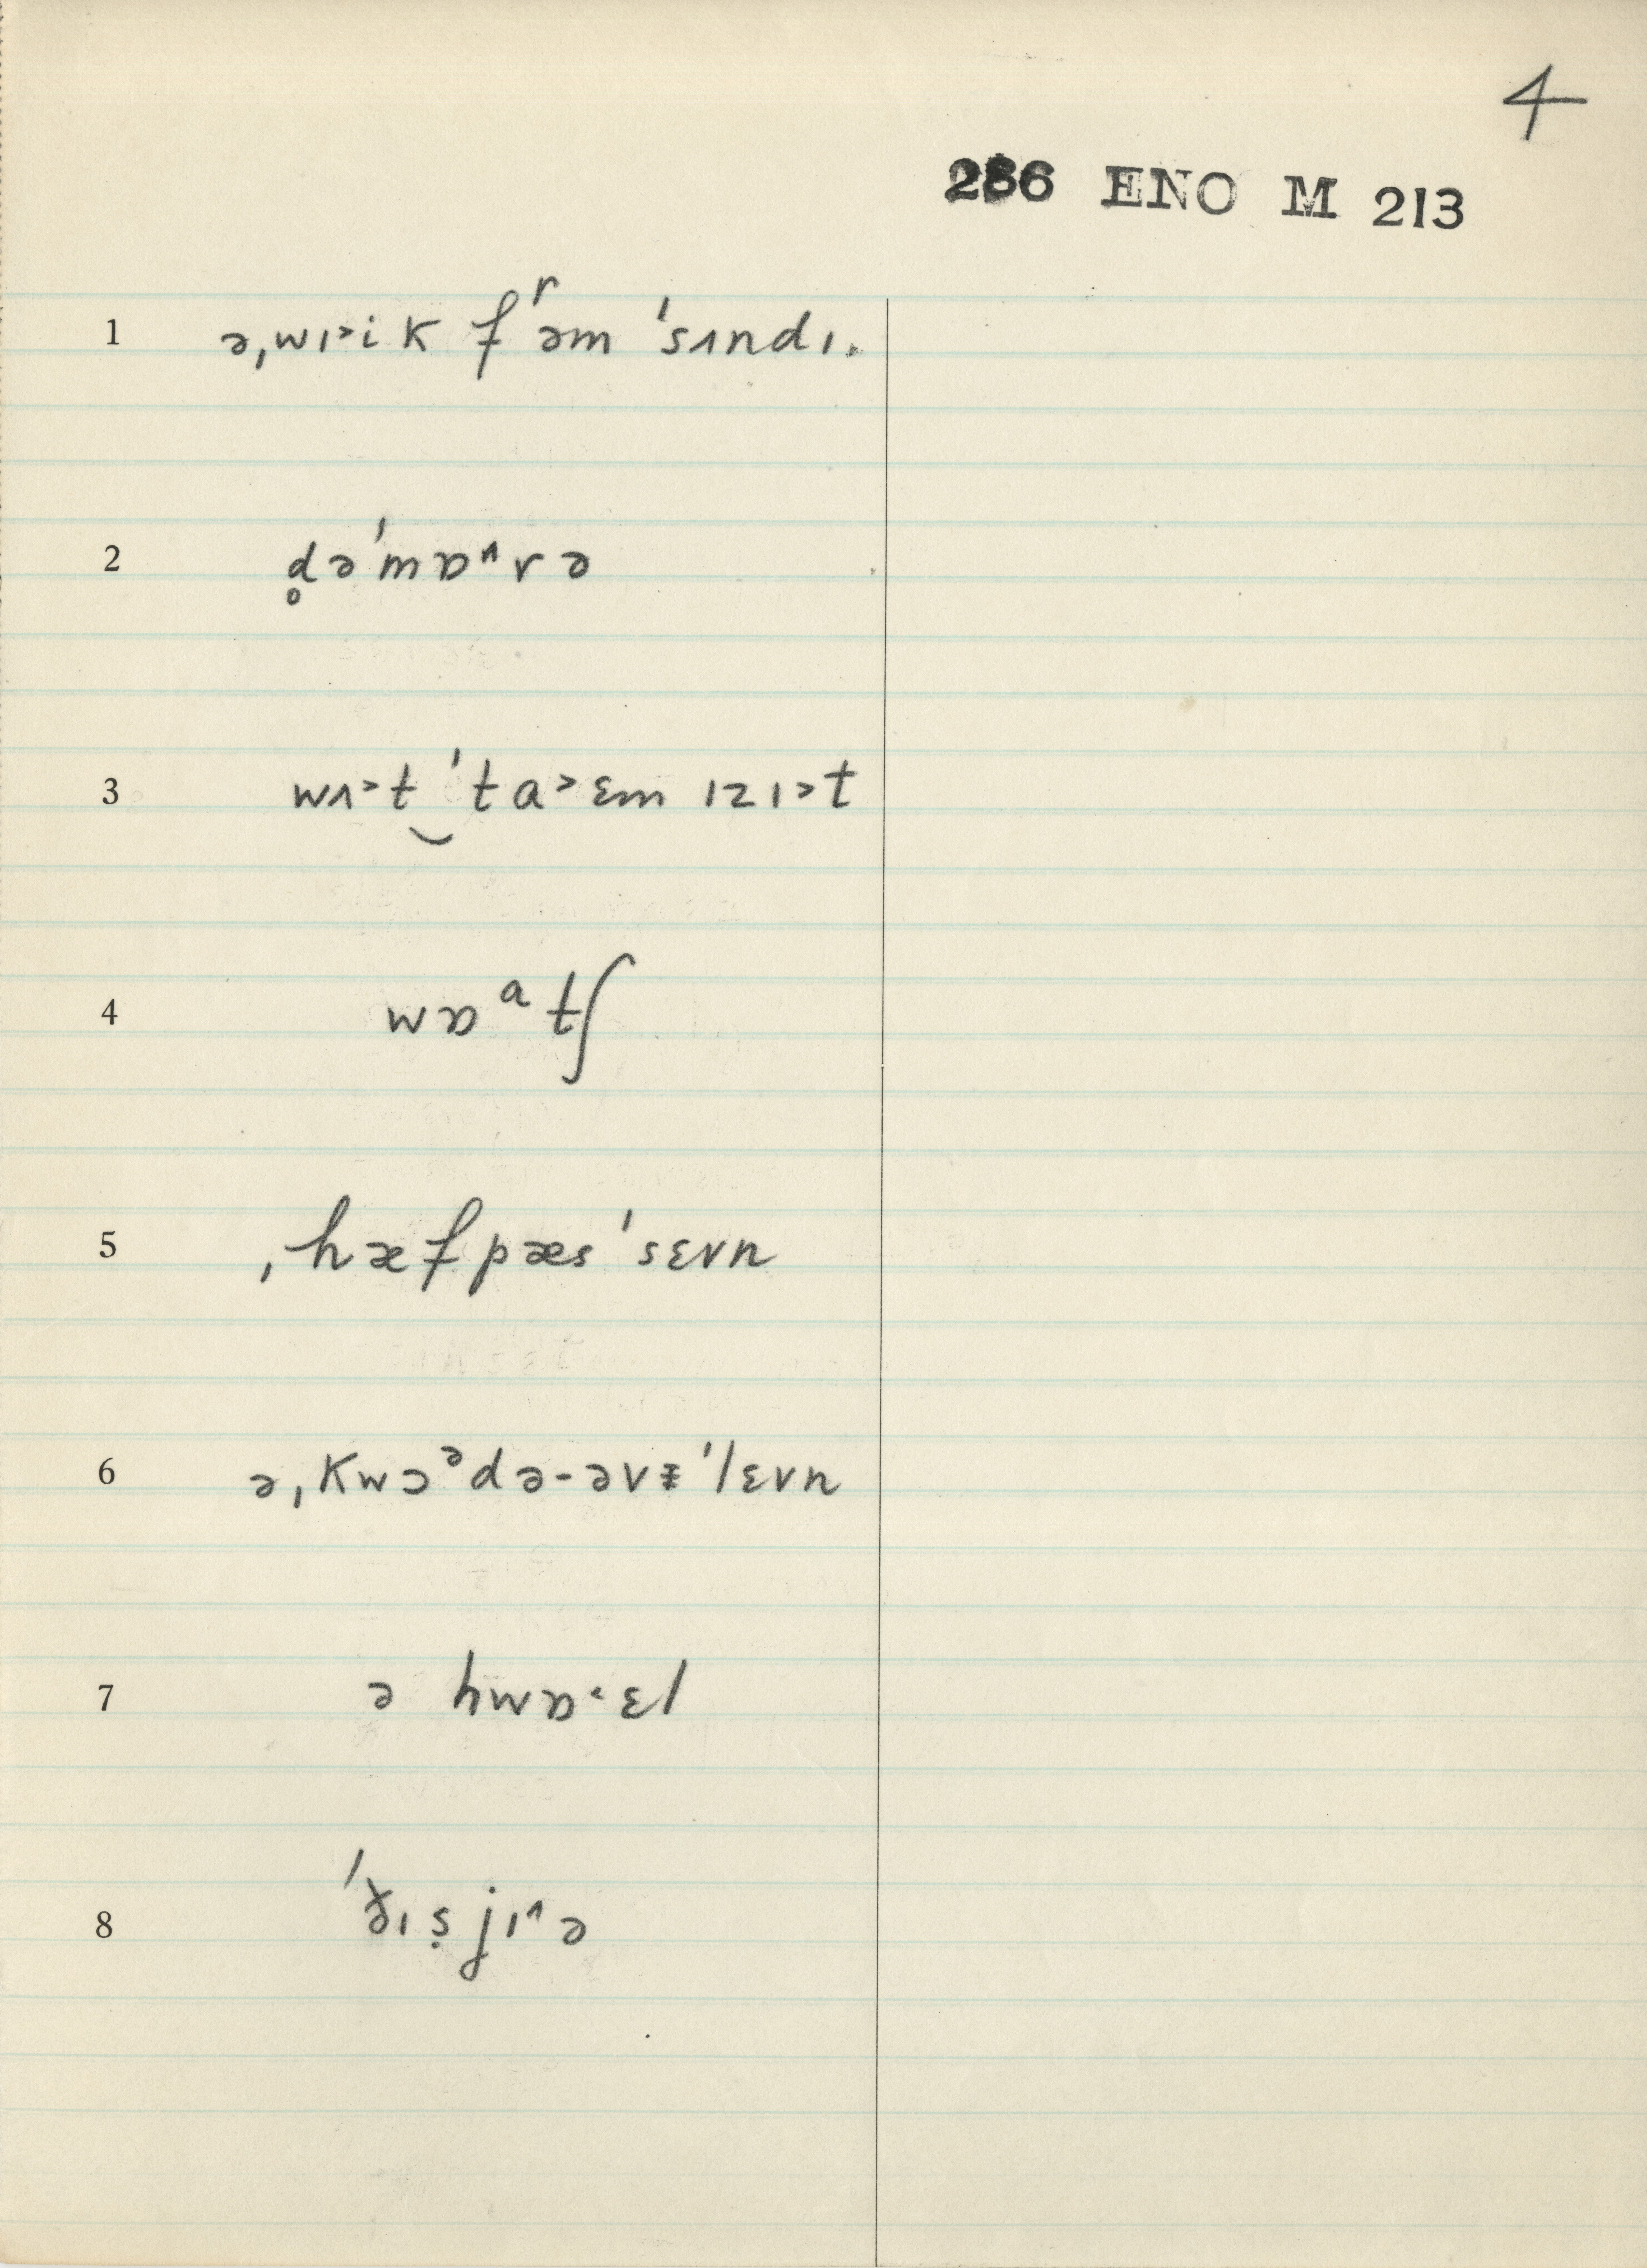 4
286 ENO M 213
1 ə,wɪ˃ik fʳəm 'sʌndɪ.
2 d̥ə'mɒ^rə
3 wʌ˃t‿'ta˃ɛm ɪzɪ˃t
4 wɒᵃtʃ
5 ,hæfpæs'sɛvn
6 ə,kwɔᵊdə-əvᵻ'lɛvn
7 ə hwɒ˂ɛl
8 'ðɪṣjɪ^ə